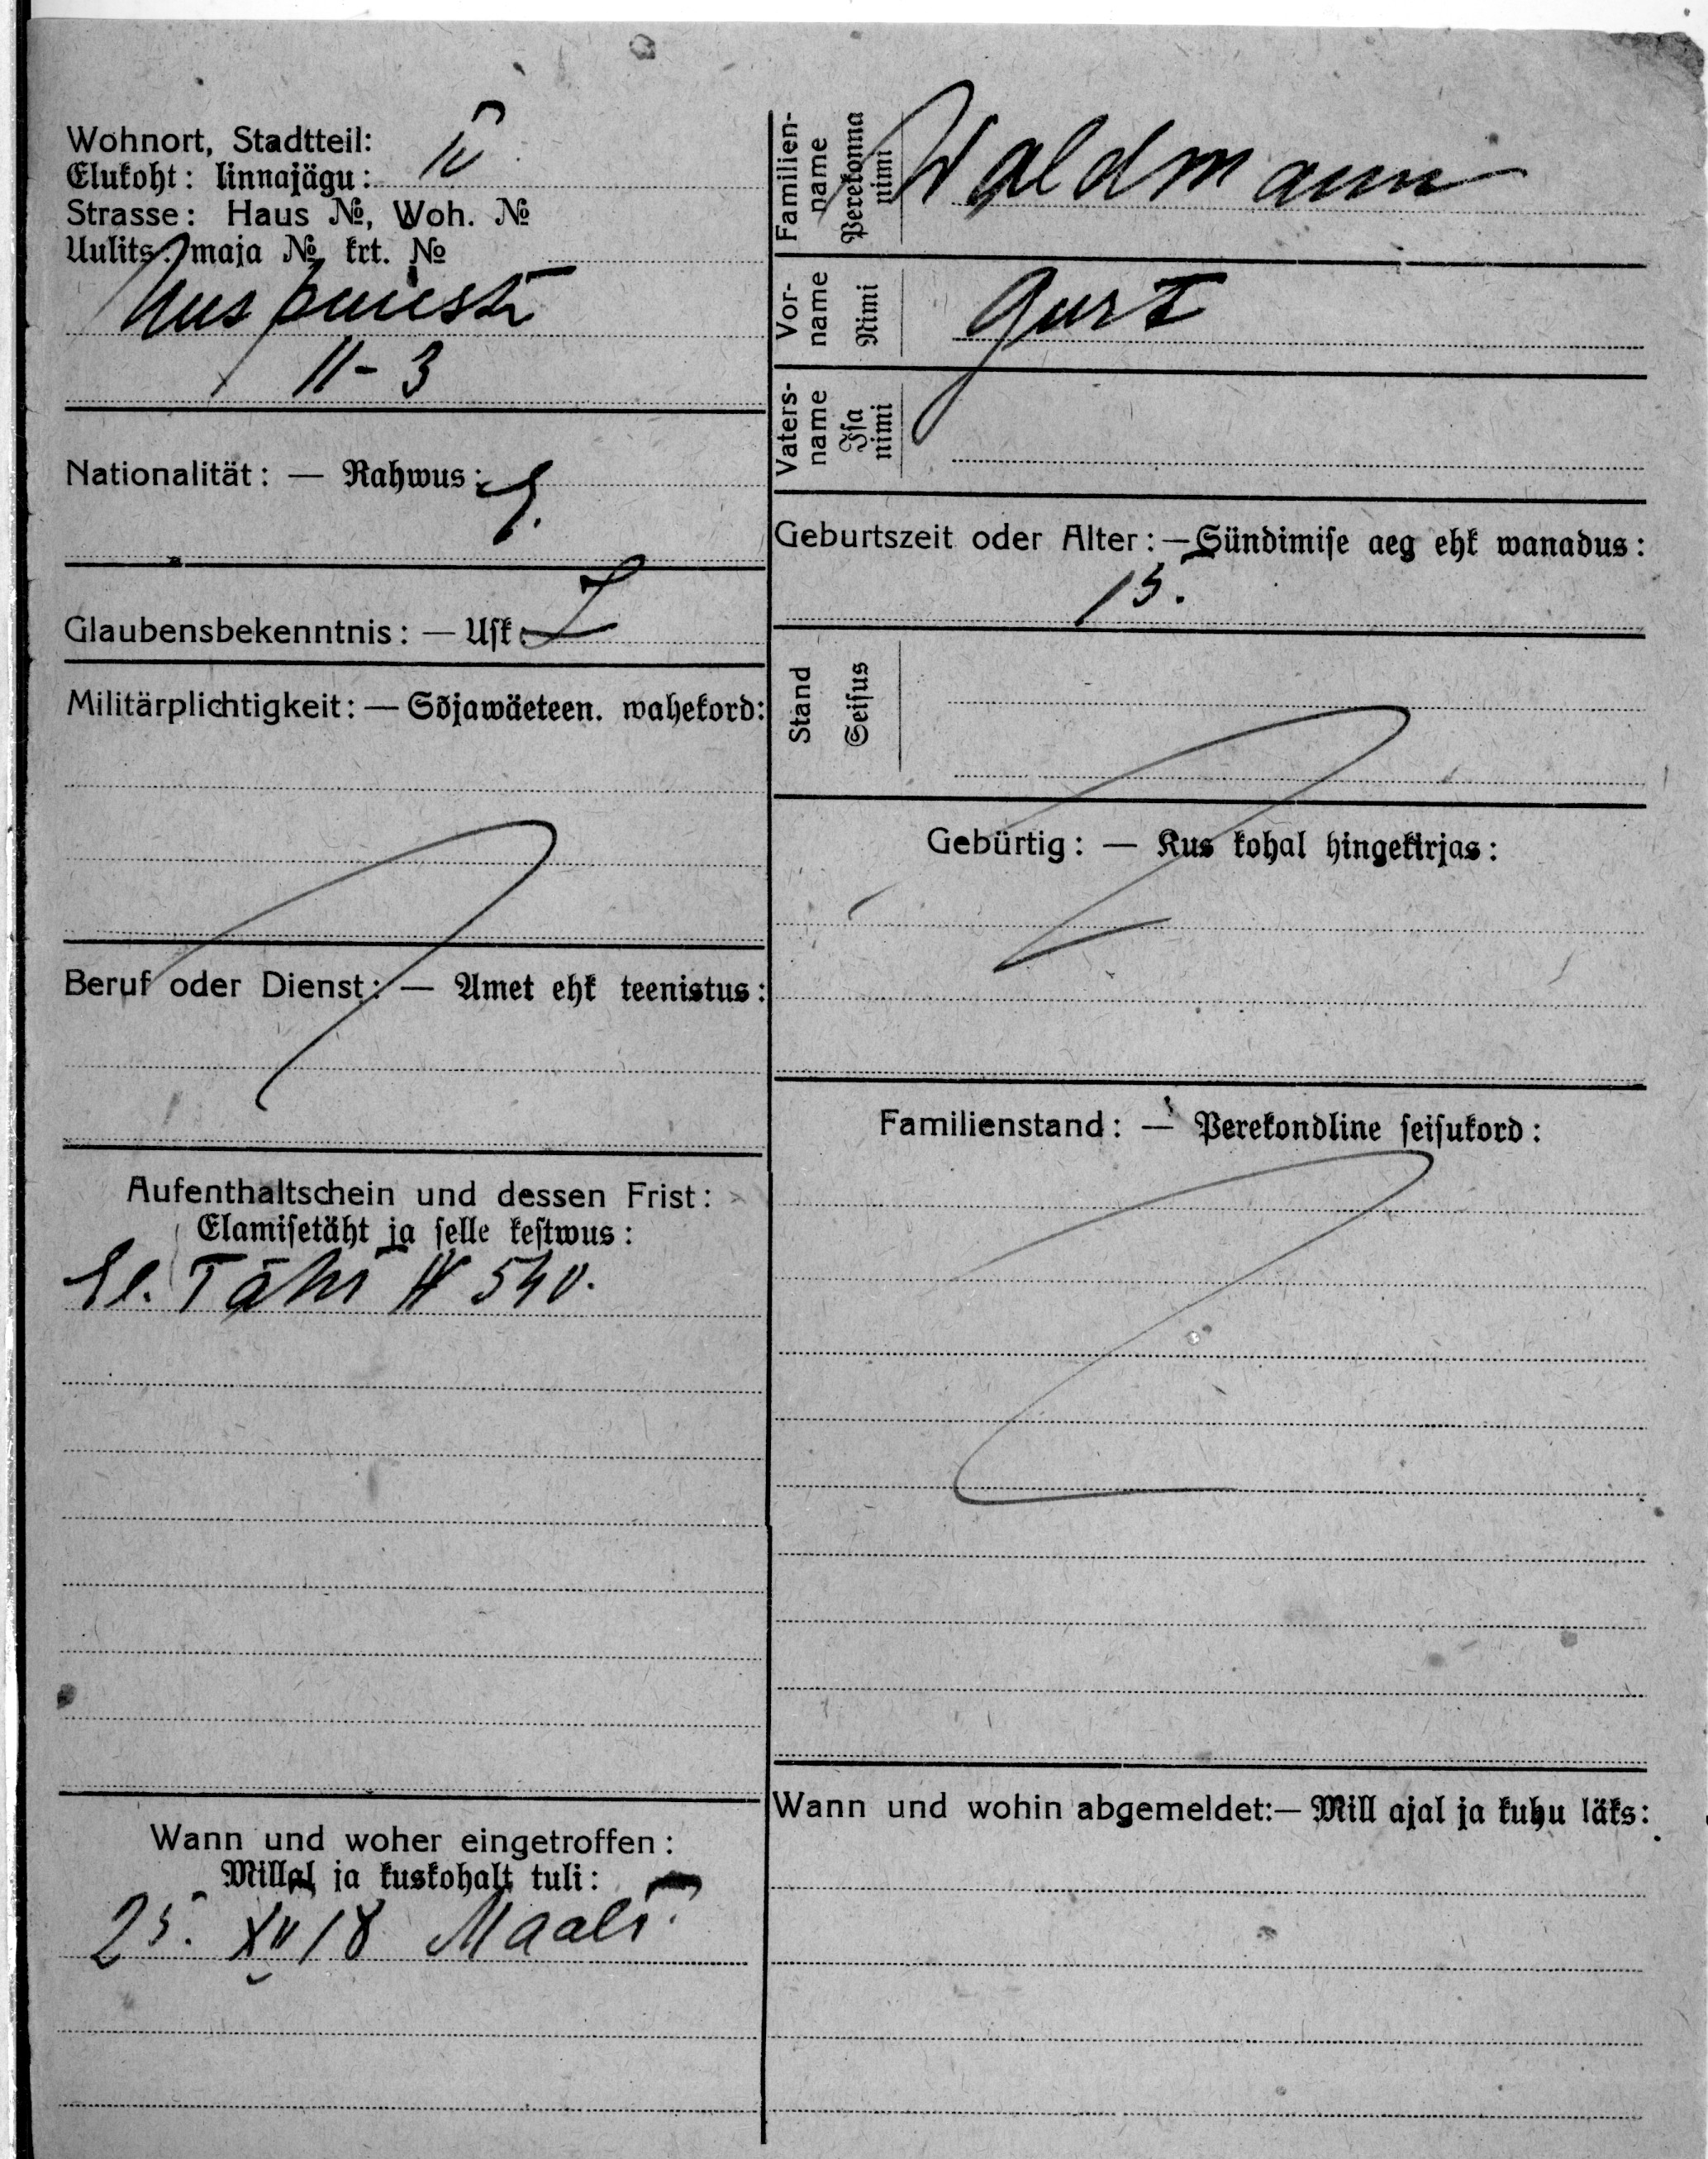 Wohnort, Stadtteil:
Elukoht: linnajägu: IV
Strasse: Haus №, Woh. №
Uulits: maja № krt. №
Uus puiest
11-3
Nationalität: — Rahwus:
Glaubensbekenntnis: — Usk L
Militärplichtigkeit: — Sõjawäeteen. wahekord:
Beruf oder Dienst: — Amet ehk teenistus:
Aufenthaltschein und dessen Frist:
Elamisetäht ja selle kestwus:
El. Täht № 540.
Wann und woher eingetroffen:
Millal ja kuskohalt tuli:
25. XII 18 Maalt.
Familien-
name
Perekonna
nimi
Waldmann
Vor-
name
Nimi
Vaters-
name
Isa
nimi
Geburtszeit oder Alter: — Sündimise aeg ehk wanadus:
15.
Stand
Seisus
Gebürtig: — Kus kohal hingekirjas:
Familienstand: — Perekondline seisukord:
Wann und wohin abgemeldet: — Mill ajal ja kuhu läks: